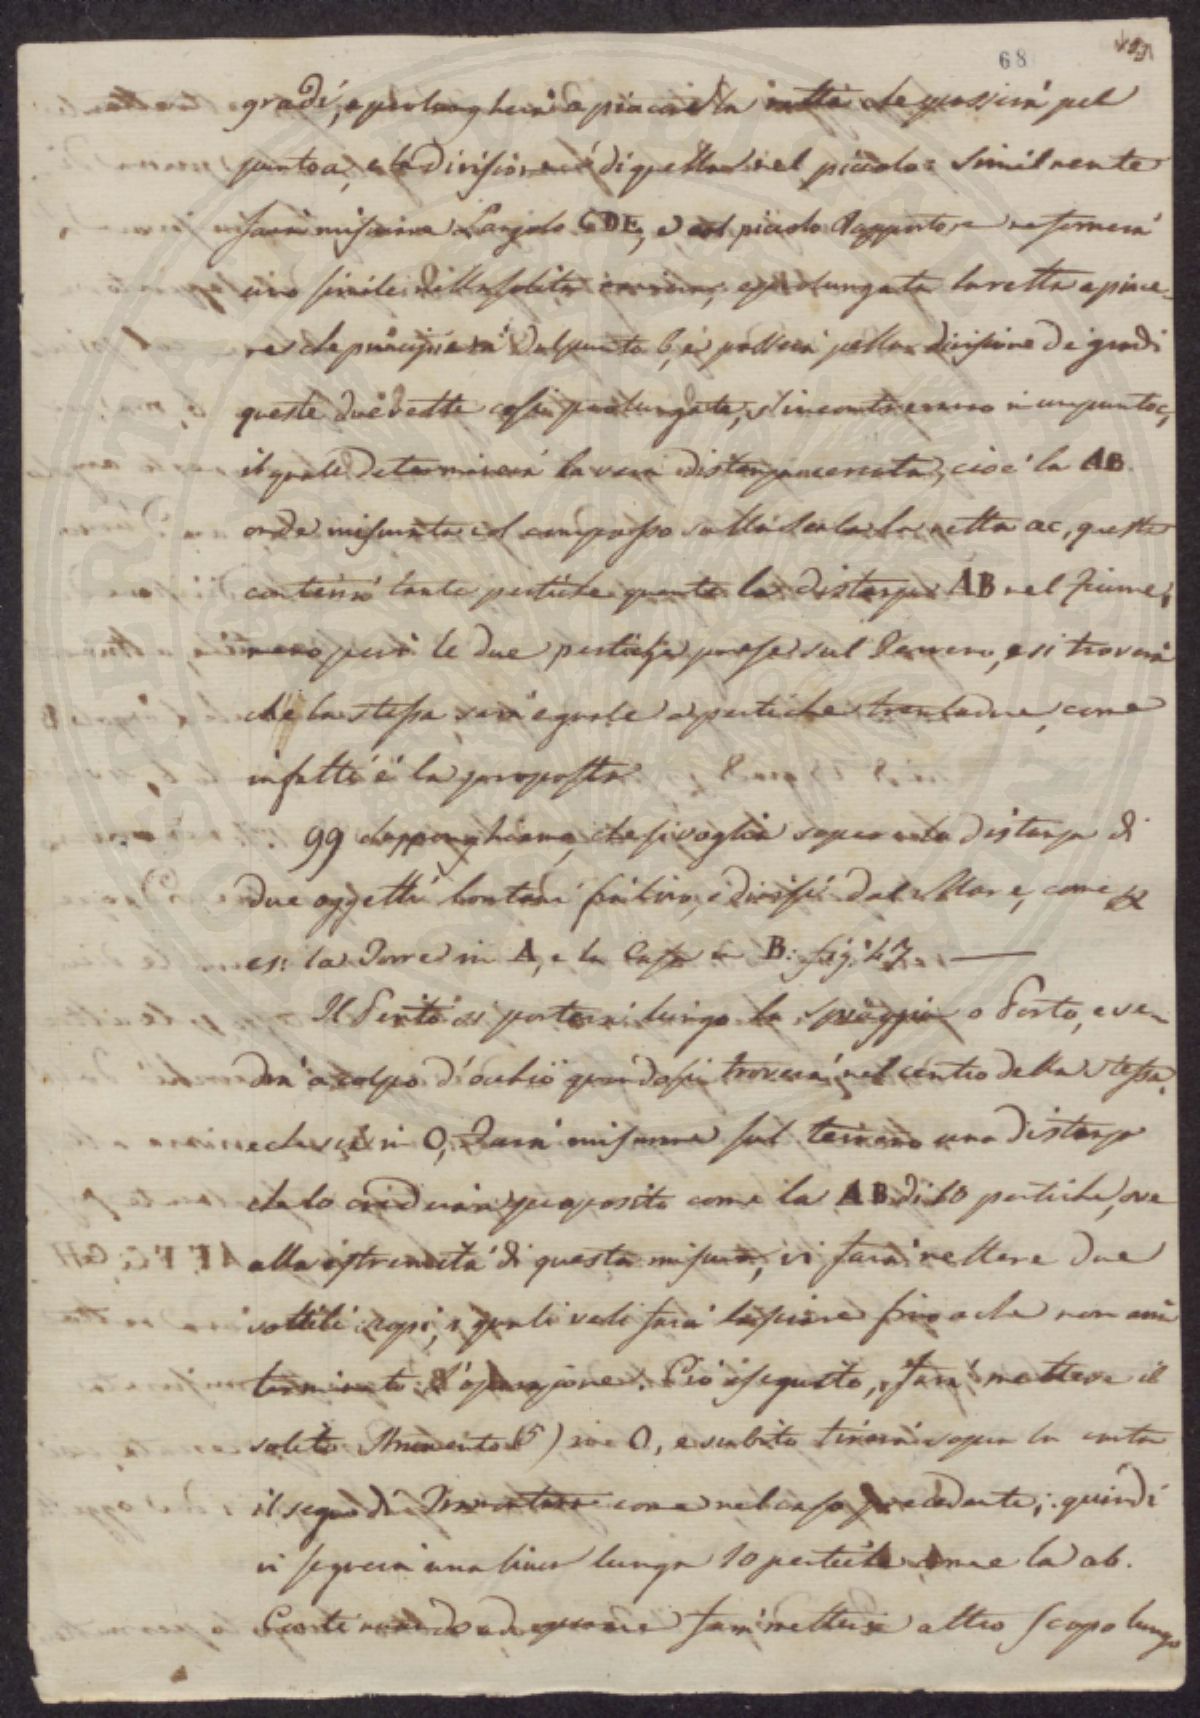 68
gradi, e prolungherà a piacere la retta che passerà pel
punto a, e la divisione di quella nel piccolo: similmente
farà misurare l'angolo CDE, e col piccolo Rapportore ne formerà
uno simile nella solita maniera; e prolungata la retta a piace-
re che principierà dal punto b, e passerà pella divisione de gradi
queste due rette così prolungate, s'incontreranno in un punto c,
il quale determinerà la vera distanza cercata, cioè la AB
onde misurata col compasso sulla scala la retta ac, questa
conterrà tante pertiche quanto la distanza AB nel Fiume;
meno però le due pertiche prese sul Terreno, e si troverà
che la stessa sarà eguale a pertiche trentadue, come
infatti è la proposta
99 Supponghiamo, che si voglia sapere la distanza di
due oggetti lontani fra loro, e divisi dal Mare, come p
es: la Torre in A, e la Casa in B: fig: 47.
Il Perito si porterà lungo la spiaggia o Porto, e ve-
drà a colpo d'occhio quando si troverà nel centro della stessa,
e che sia in O, Farà misurare sul terreno una distanza
che lo crederà a proposito come la AB di 10 pertiche, ove
alla estremità di questa misura, vi farà mettere due
sottili scopi, i quali veli farà lasciare fino a che non avrà
terminato l'operazione. Ciò eseguito, farà mettere il
solito Strumento (5) in O, e subito tirerà sopra la carta
il segno di Tramontana come nel caso precedente; quindi
vi segnerà una linea lunga 10 pertiche come la ab.
Continuando ad operare farà mettere altro scopo lungo